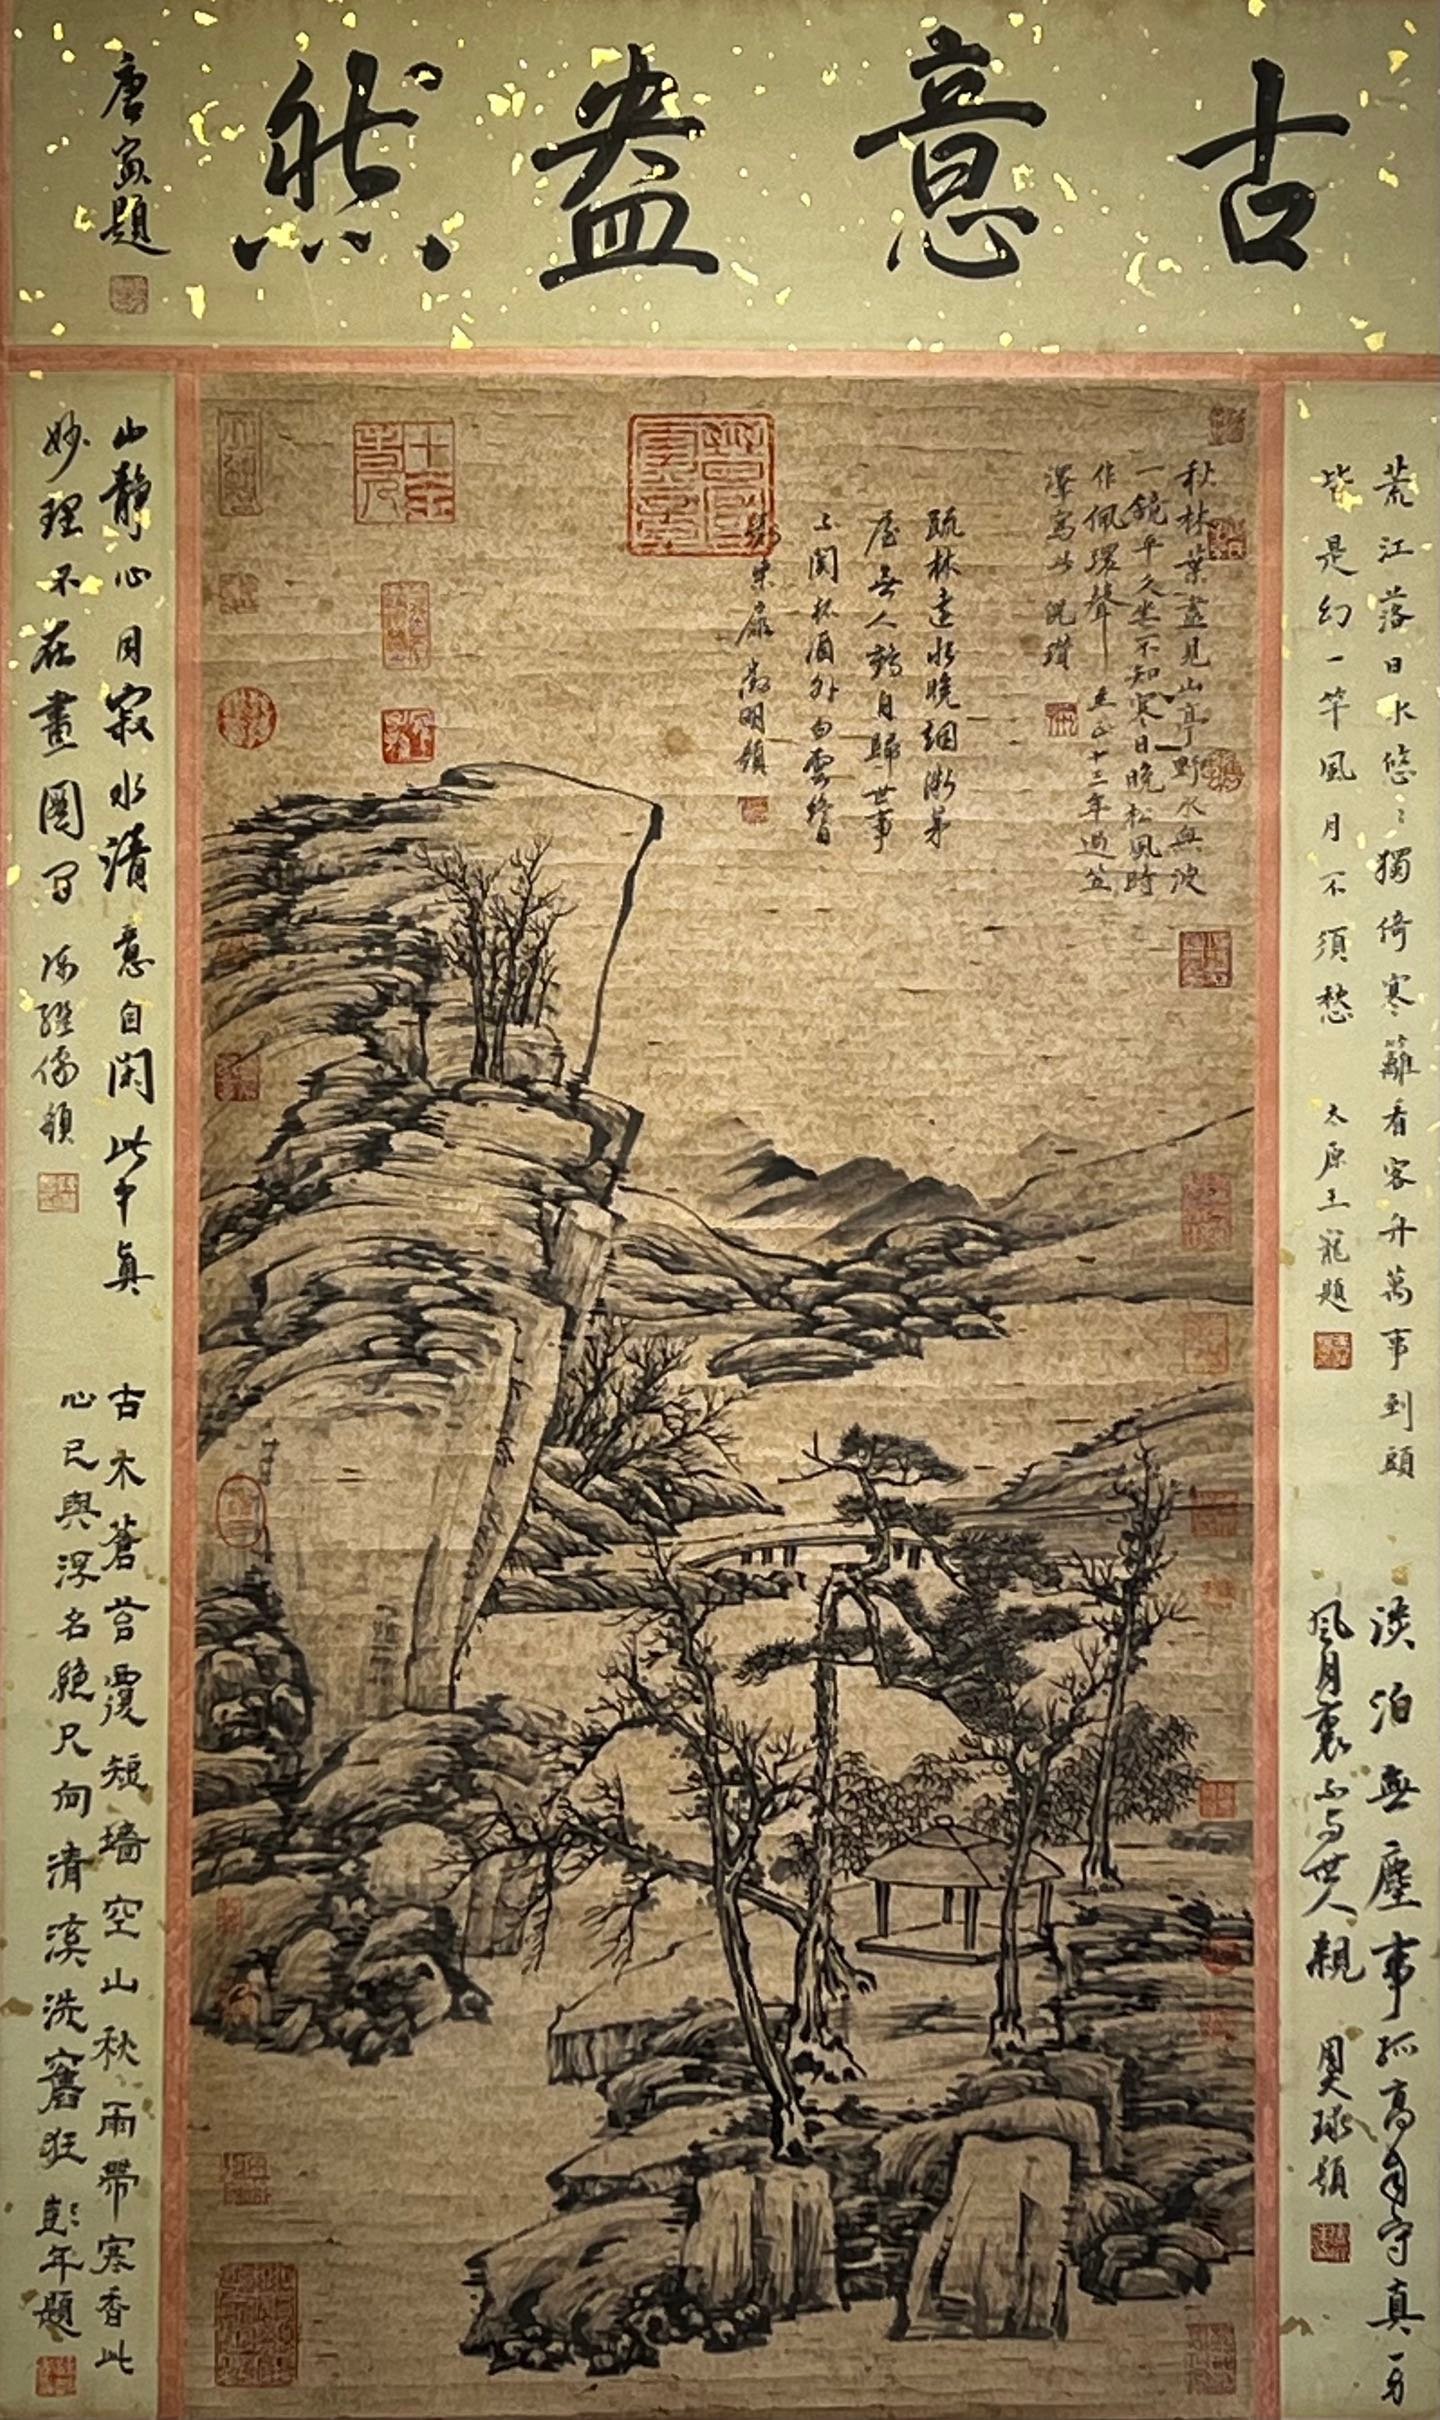 古意盎然
唐寅題
荒江落日水悠〻獨倚寒籬看客舟萬事到頭
皆是幻一竿風月不須愁
太原王寵題
淡泊無塵事孤高自守真一身
風月裏不与世人親
周天球題
秋林葉盡見山亭野水無波
一鏡平久坐不知寒日晚松風時
作佩環聲 至正十三年過笠
澤寫此 倪瓚
疏林遠水晚烟漸茅
屋無人鶴自歸世事
不關杯酒外白雲終日
徵明題
山静心同寂水清意自閑此中真
妙理不在畫圖間
陳繼儒題
古木蒼苔覆短墙空山秋雨帶寒香此
心已與浮名絶只向清溪洗舊狂 彭年題